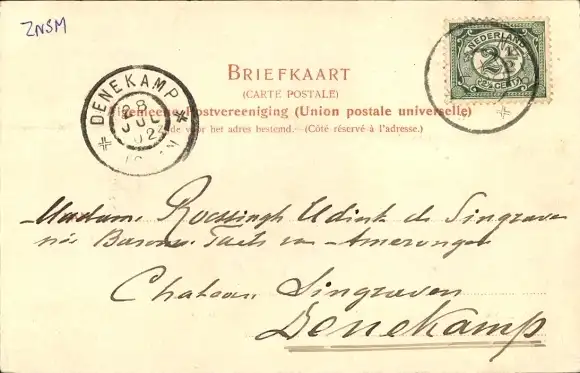 ZNSM
NEDERLAND
2½
(2½ CENT)
BRIEFKAART
(CARTE POSTALE)
Algemeene Postvereeniging (Union postale universelle)
Zijde voor het adres bestemd.—(Côté réservé à l'adresse.)
DENEKAMP
28
JUL
02
Madame Roessingh Udink de Singraven
née Baronne Taets van Amerongen
Chateau Singraven
Denekamp